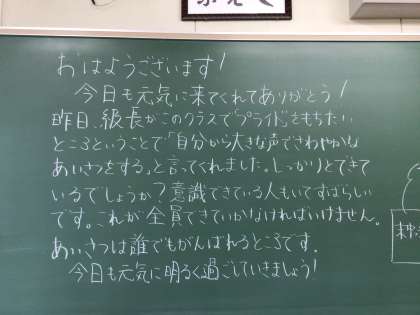 おはようございます!
今日も元気に来てくれてありがとう!
昨日、級長がこのクラスで「プライド」をもちたい
ところということで「自分から大きな声でさわやかな
あいさつをする。」と言ってくれました。しっかりとできて
いるでしょうか?意識できている人もいてすばらしい
です。これが全員できていかなければいけません。
あいさつは誰でもがんばれるところです.
今日も元気に明るく過ごしていきましょう!